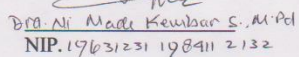 Dra. Ni Made Kembar S., M.Pd
NIP. 19631231 198411 2132